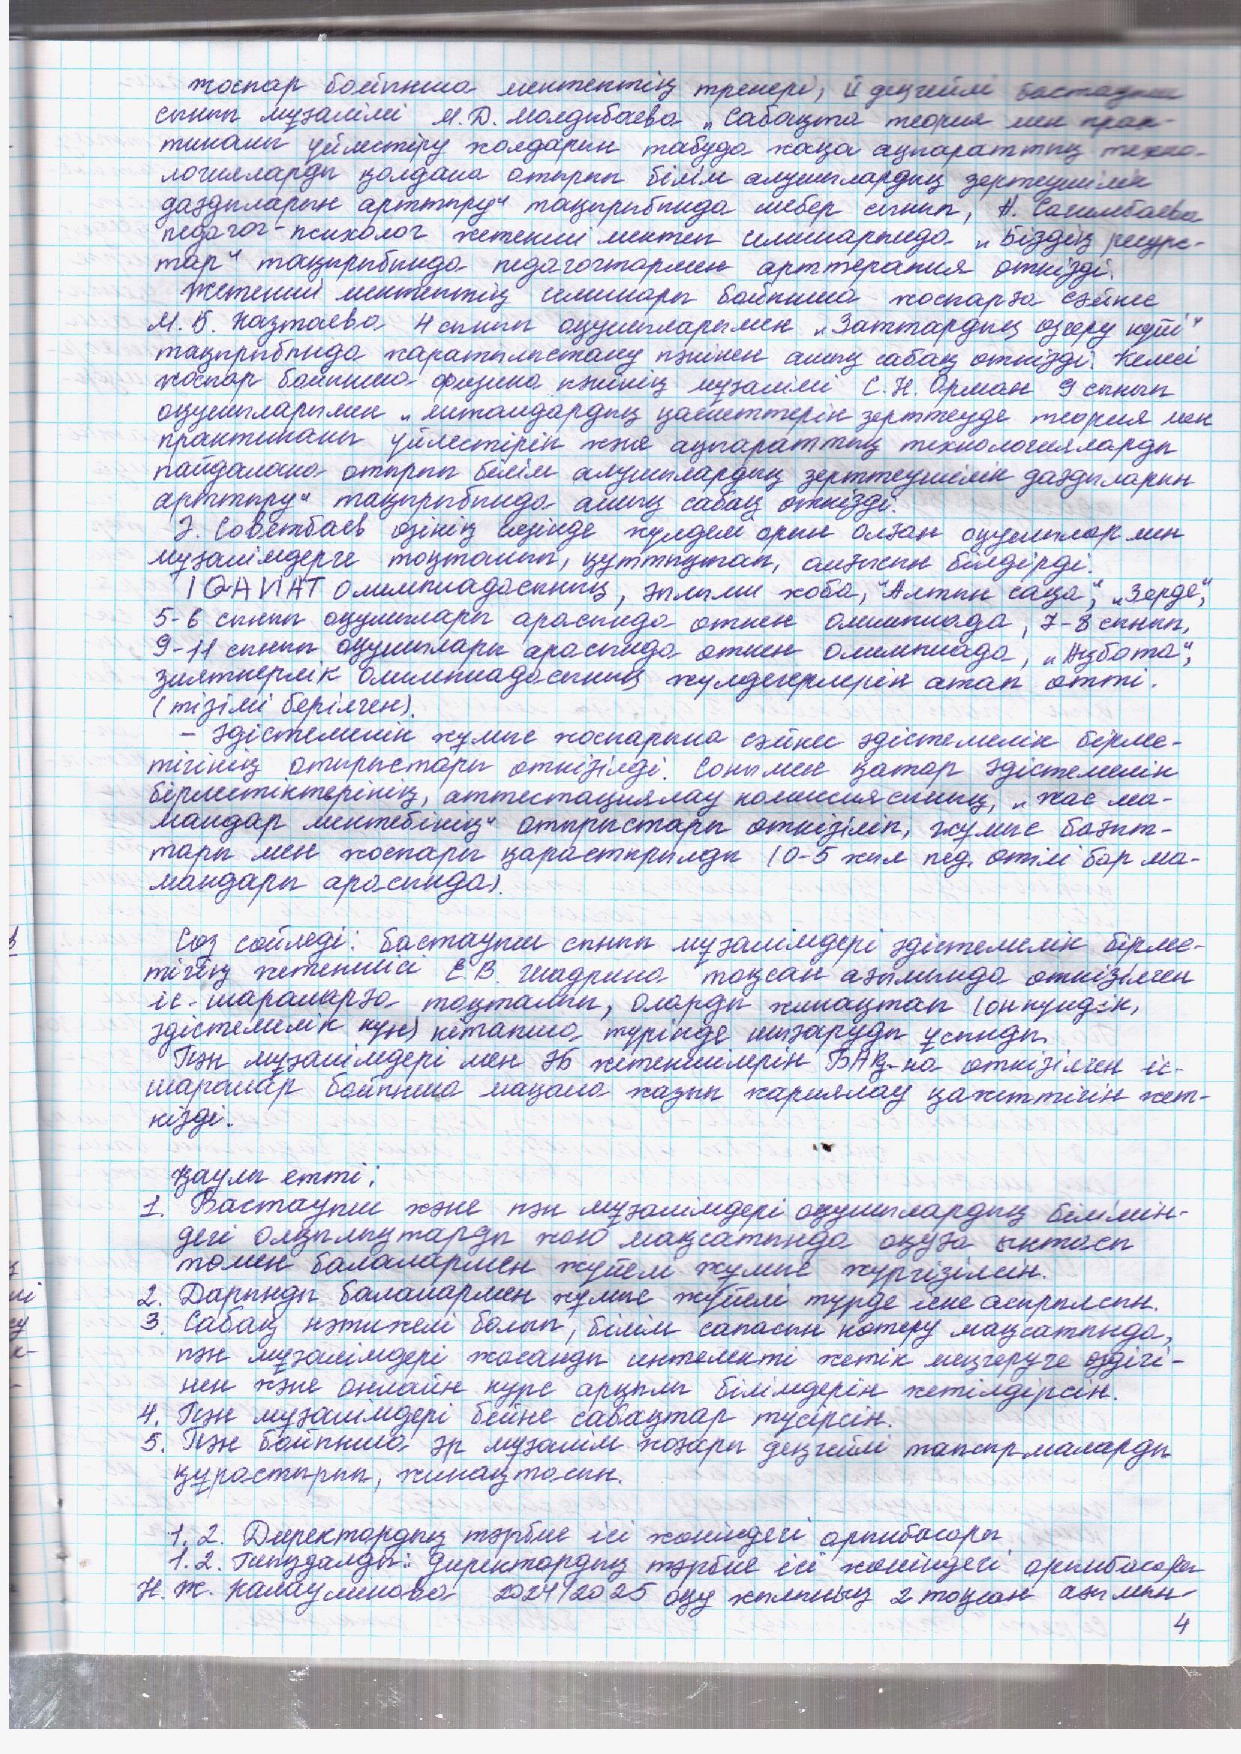 жоспар бойынша мектептің тренері, II деңгейлі бастауыш
сынып мұғалімі М.Д. Молдыбаева „Сабақта теория мен прак-
тиканы үйлестіру жолдарын табуда жаңа ақпараттық техно-
логияларды қолдана отырып білім алушылардың зерттеушілік
дағдыларын арттыру" тақырыбында шебер сынып, А. Сагимбаева
педагог-психолог жетекші мектеп семинарында „Біздің ресурс-
тар" тақырыбында педагогтармен арттерапия өткізді.
Жетекші мектептің семинары бойынша жоспарға сәйкес
М.Б. Назтаева 4 сынып оқушыларымен „Заттардың өзгеру күші"
тақырыбында жаратылыстану пәнінен ашық сабақ өткізді. Келесі
жоспар бойынша физика пәнінің мұғалімі С.Н. Орман 9 сынып
оқушыларымен „Металдардың қасиеттерін зерттеуде теория мен
практиканы үйлестіріп және ақпараттық технологияларды
пайдалана отырып білім алушылардың зерттеушілік дағдыларын
арттыру" тақырыбында ашық сабақ өткізді.
Ғ. Советбаев өзінің сөзінде жүлделі орын алған оқушылар мен
мұғалімдерге тоқталып, құттықтап, алғысын білдірді.
IQANAT олимпиадасының, ғылыми жоба, "Алтын сақа", „Зерде",
5-6 сынып оқушылары арасында өткен олимпиада, 7-8 сынып,
9-11 сынып оқушылары арасында өткен олимпиада, „Ақбота",
зияткерлік олимпиадасының жүлдегерлерін атап өтті.
(тізімі берілген).
– Әдістемелік жұмыс жоспарына сәйкес әдістемелік бірлес-
тігінің отырыстары өткізілді. Сонымен қатар әдістемелік
бірлестіктерінің, аттестациялау комиссиясының, „Жас ма-
мандар мектебінің" отырыстары өткізіліп, жұмыс бағыт-
тары мен жоспары қарастырылды (0-5 жыл пед. өтілі бар ма-
мандары арасында).
Сөз сөйледі: Бастауыш сынып мұғалімдері әдістемелік бірлес-
тігінің жетекшісі Е.В. Шадрина тоқсан ағымында өткізілген
іс-шараларға тоқталып, оларды жинақтап (онкүндік,
әдістемелік күн) кітапша түрінде шығаруды ұсынды.
Пән мұғалімдері мен ӘБ жетекшілерін БАҚ-на өткізілген іс-
шаралар бойынша мақала жазып жариялау қажеттігін жет-
кізді.
Қаулы етті:
1. Бастауыш және пән мұғалімдері оқушылардың білімін-
дегі олқылықтарды жою мақсатында оқуға ынтасы
төмен балалармен жүйелі жұмыс жүргізілсін.
2. Дарынды балалармен жұмыс жүйелі түрде іске асырылсын.
3. Сабақ нәтижелі болып, білім сапасын көтеру мақсатында,
пән мұғалімдері жасанды интелекті жетік меңгеруге өздігі-
нен және онлайн курс арқылы білімдерін жетілдірсін.
4. Пән мұғалімдері бейне сабақтар түсірсін.
5. Пән бойынша әр мұғалім жоғары деңгейлі тапсырмаларды
құрастырып, жинақтасын.
1.2. Директордың тәрбие ісі жөніндегі орынбасары
1.2. Тыңдалды: Директордың тәрбие ісі жөніндегі орынбасары
Н.Ж. Калаулинова 2024/2025 оқу жылының 2 тоқсан ағымын-
4